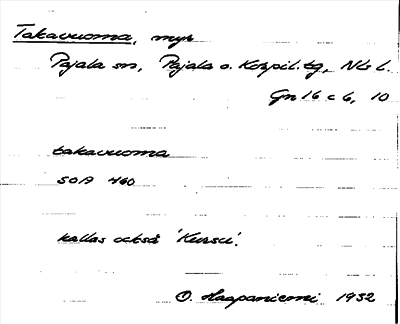 Takavuoma, myr
Pajala sn, Pajala o. Korpil. tg, Nb l.
Gn 16 c 6, 10
takavuoma
SOA 460
kallas också 'Kursu'.
O. Haapaniemi 1932